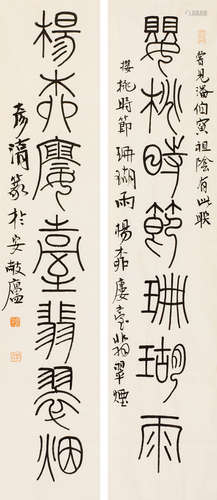 曾見潘伯寅祖蔭有此聯
嬰桃時節珊瑚雨
櫻桃時節珊瑚雨楊桺廔臺翡翠煙
楊桺廔臺翡翠烟
篆於安敏廬